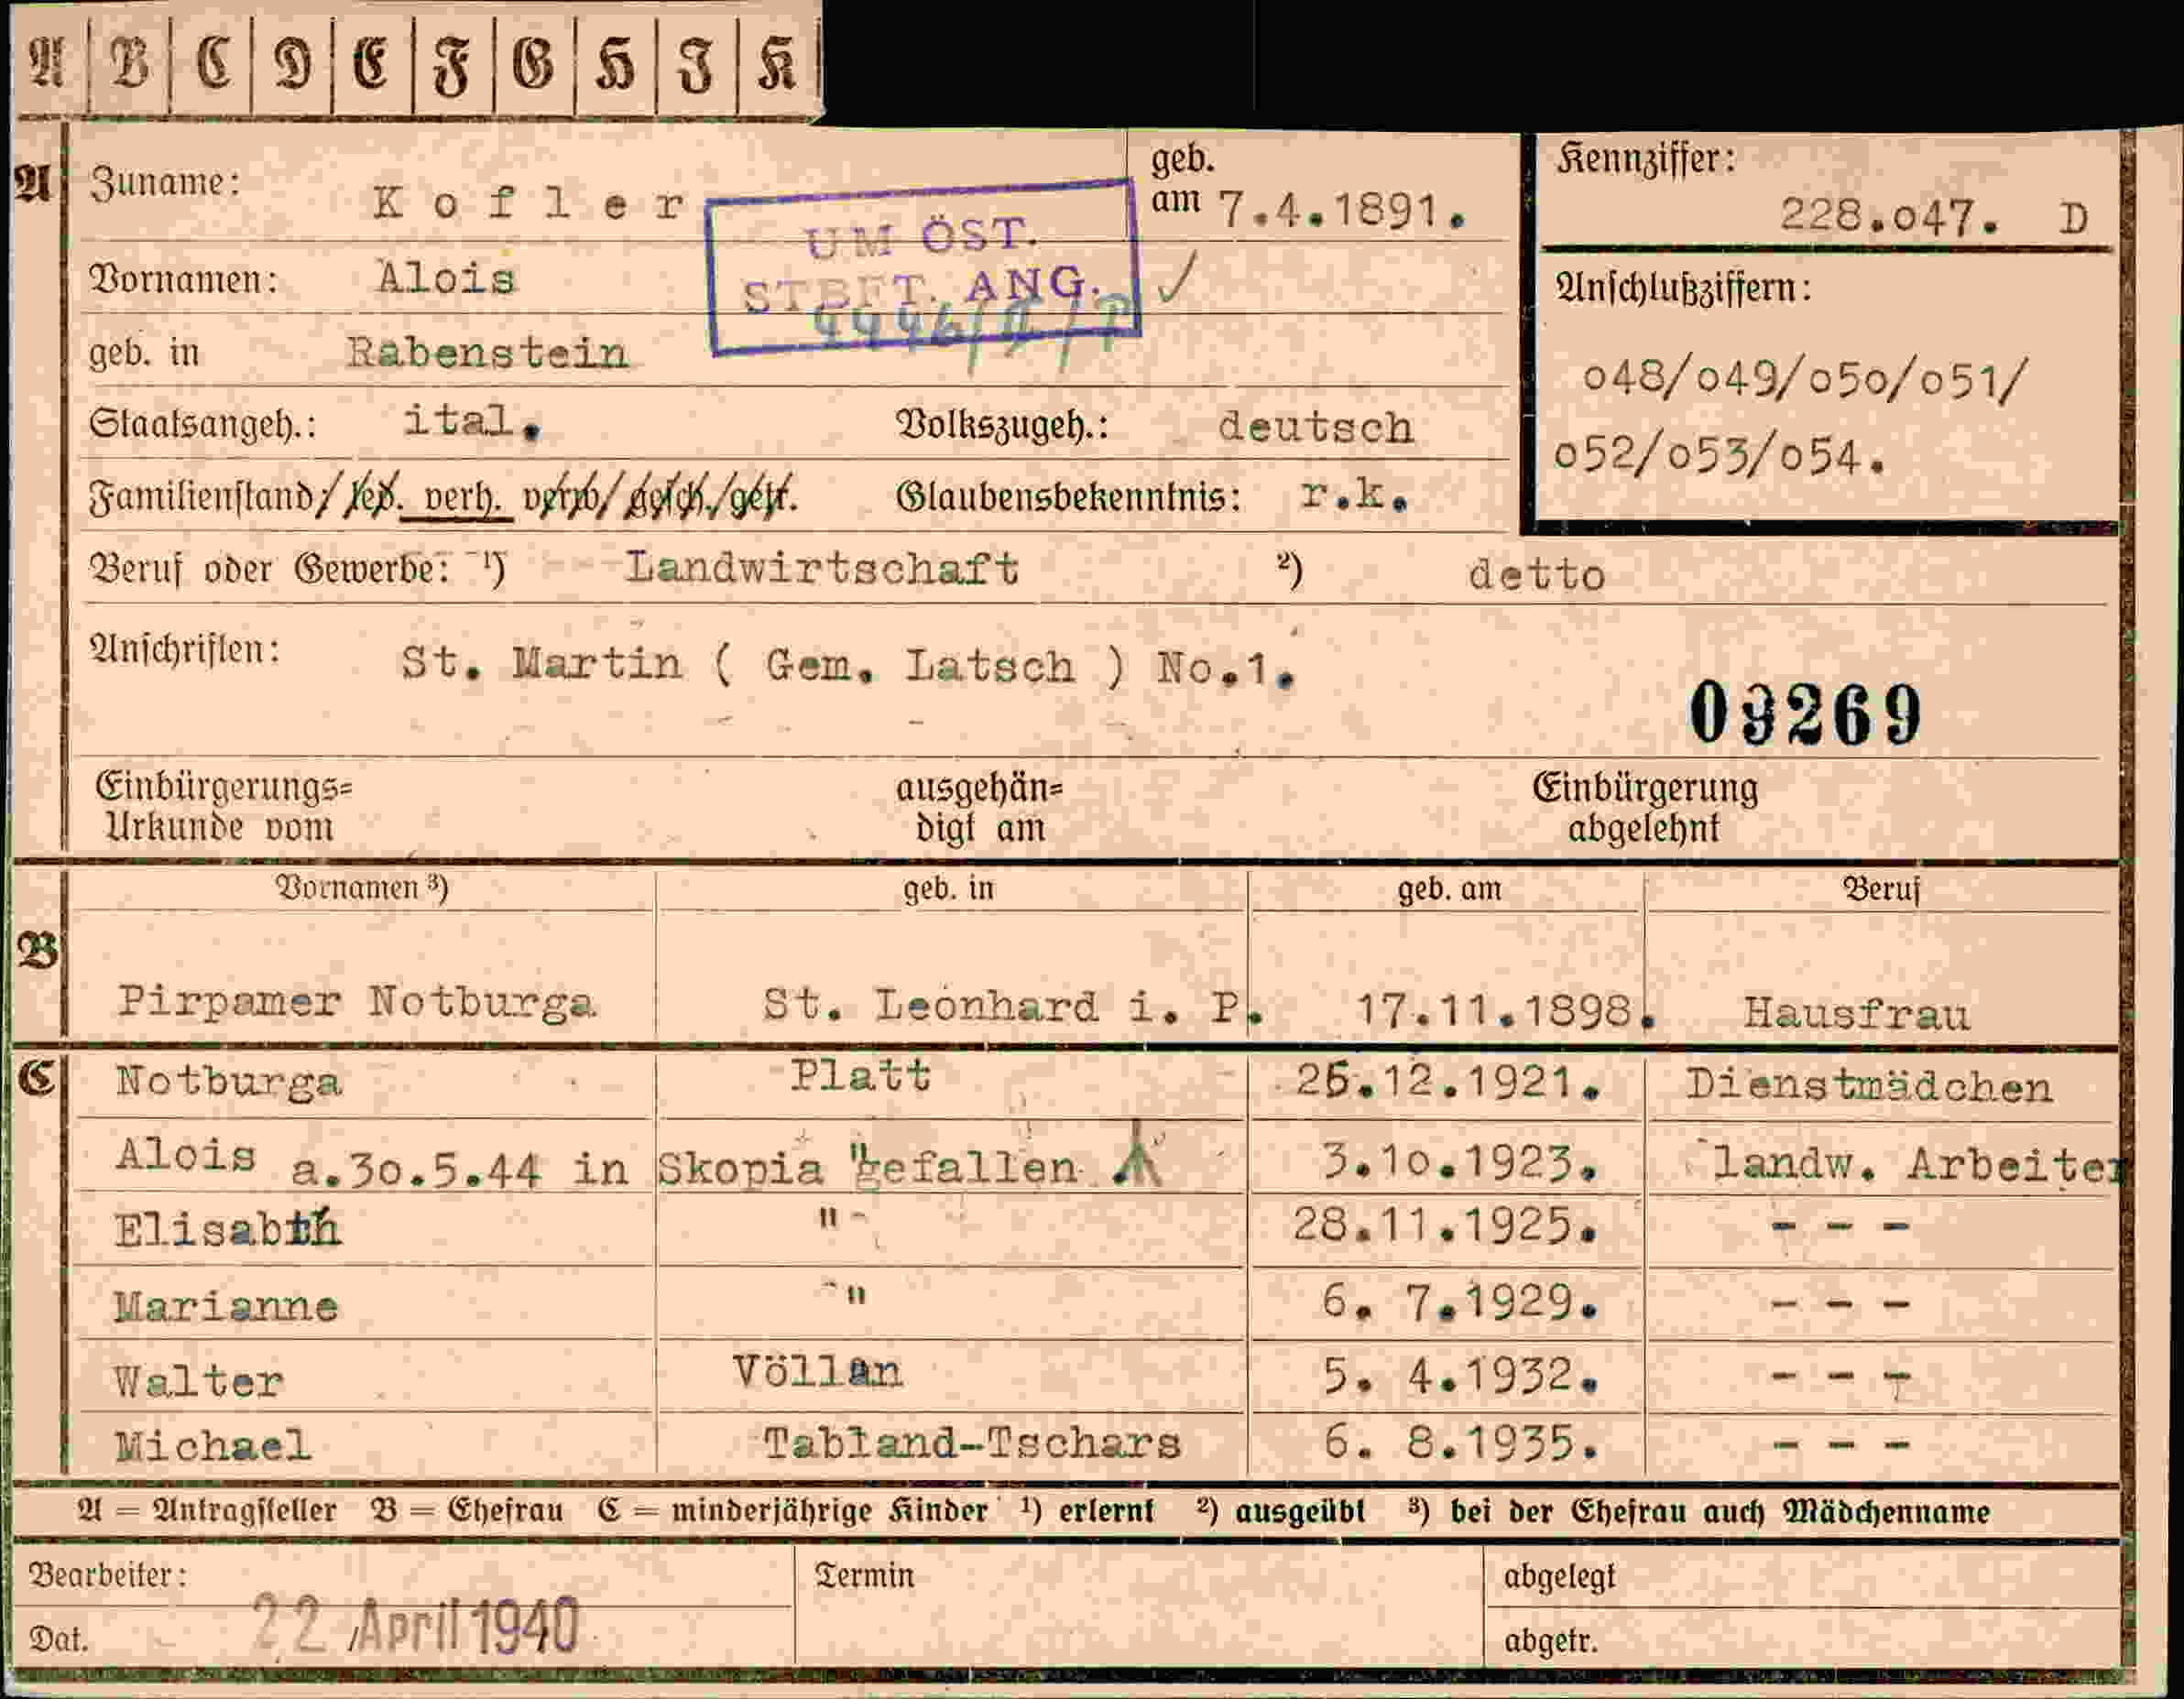 A B C D E F G H I K
A Zuname: Kofler geb. am 7.4.1891.
Kennziffer: 228.o47. D
UM ÖST.
STBFT. ANG. ✓
Vornamen: Alois
Anschlußziffern:
geb. in Rabenstein
o48/o49/o5o/o51/
o52/o53/o54.
Staatsangeh.: ital. Volkszugeh.: deutsch
Familienstand/led. verh. verw/gesch./getr. Glaubensbekenntnis: r.k.
Beruf oder Gewerbe: ¹) Landwirtschaft ²) detto
Anschriften: St. Martin ( Gem. Latsch ) No.1.
09269
Einbürgerungs= Urkunde vom
ausgehän= digt am
Einbürgerung abgelehnt
Vornamen ³) geb. in geb. am Beruf
B Pirpamer Notburga St. Leonhard i. P. 17.11.1898. Hausfrau
C Notburga Platt 26.12.1921. Dienstmädchen
Alois a.3o.5.44 in Skopia " gefallen 3.1o.1923. landw. Arbeiter
Elisabth " 28.11.1925. - - -
Marianne " 6. 7.1929. - - -
Walter Völlan 5. 4.1932. - - -
Michael Tabland-Tschars 6. 8.1935. - - -
A = Antragsteller B = Ehefrau C = minderjährige Kinder ¹) erlernt ²) ausgeübt ³) bei der Ehefrau auch Mädchenname
Bearbeiter: Termin abgelegt
Dat. 22 April 1940 abgetr.